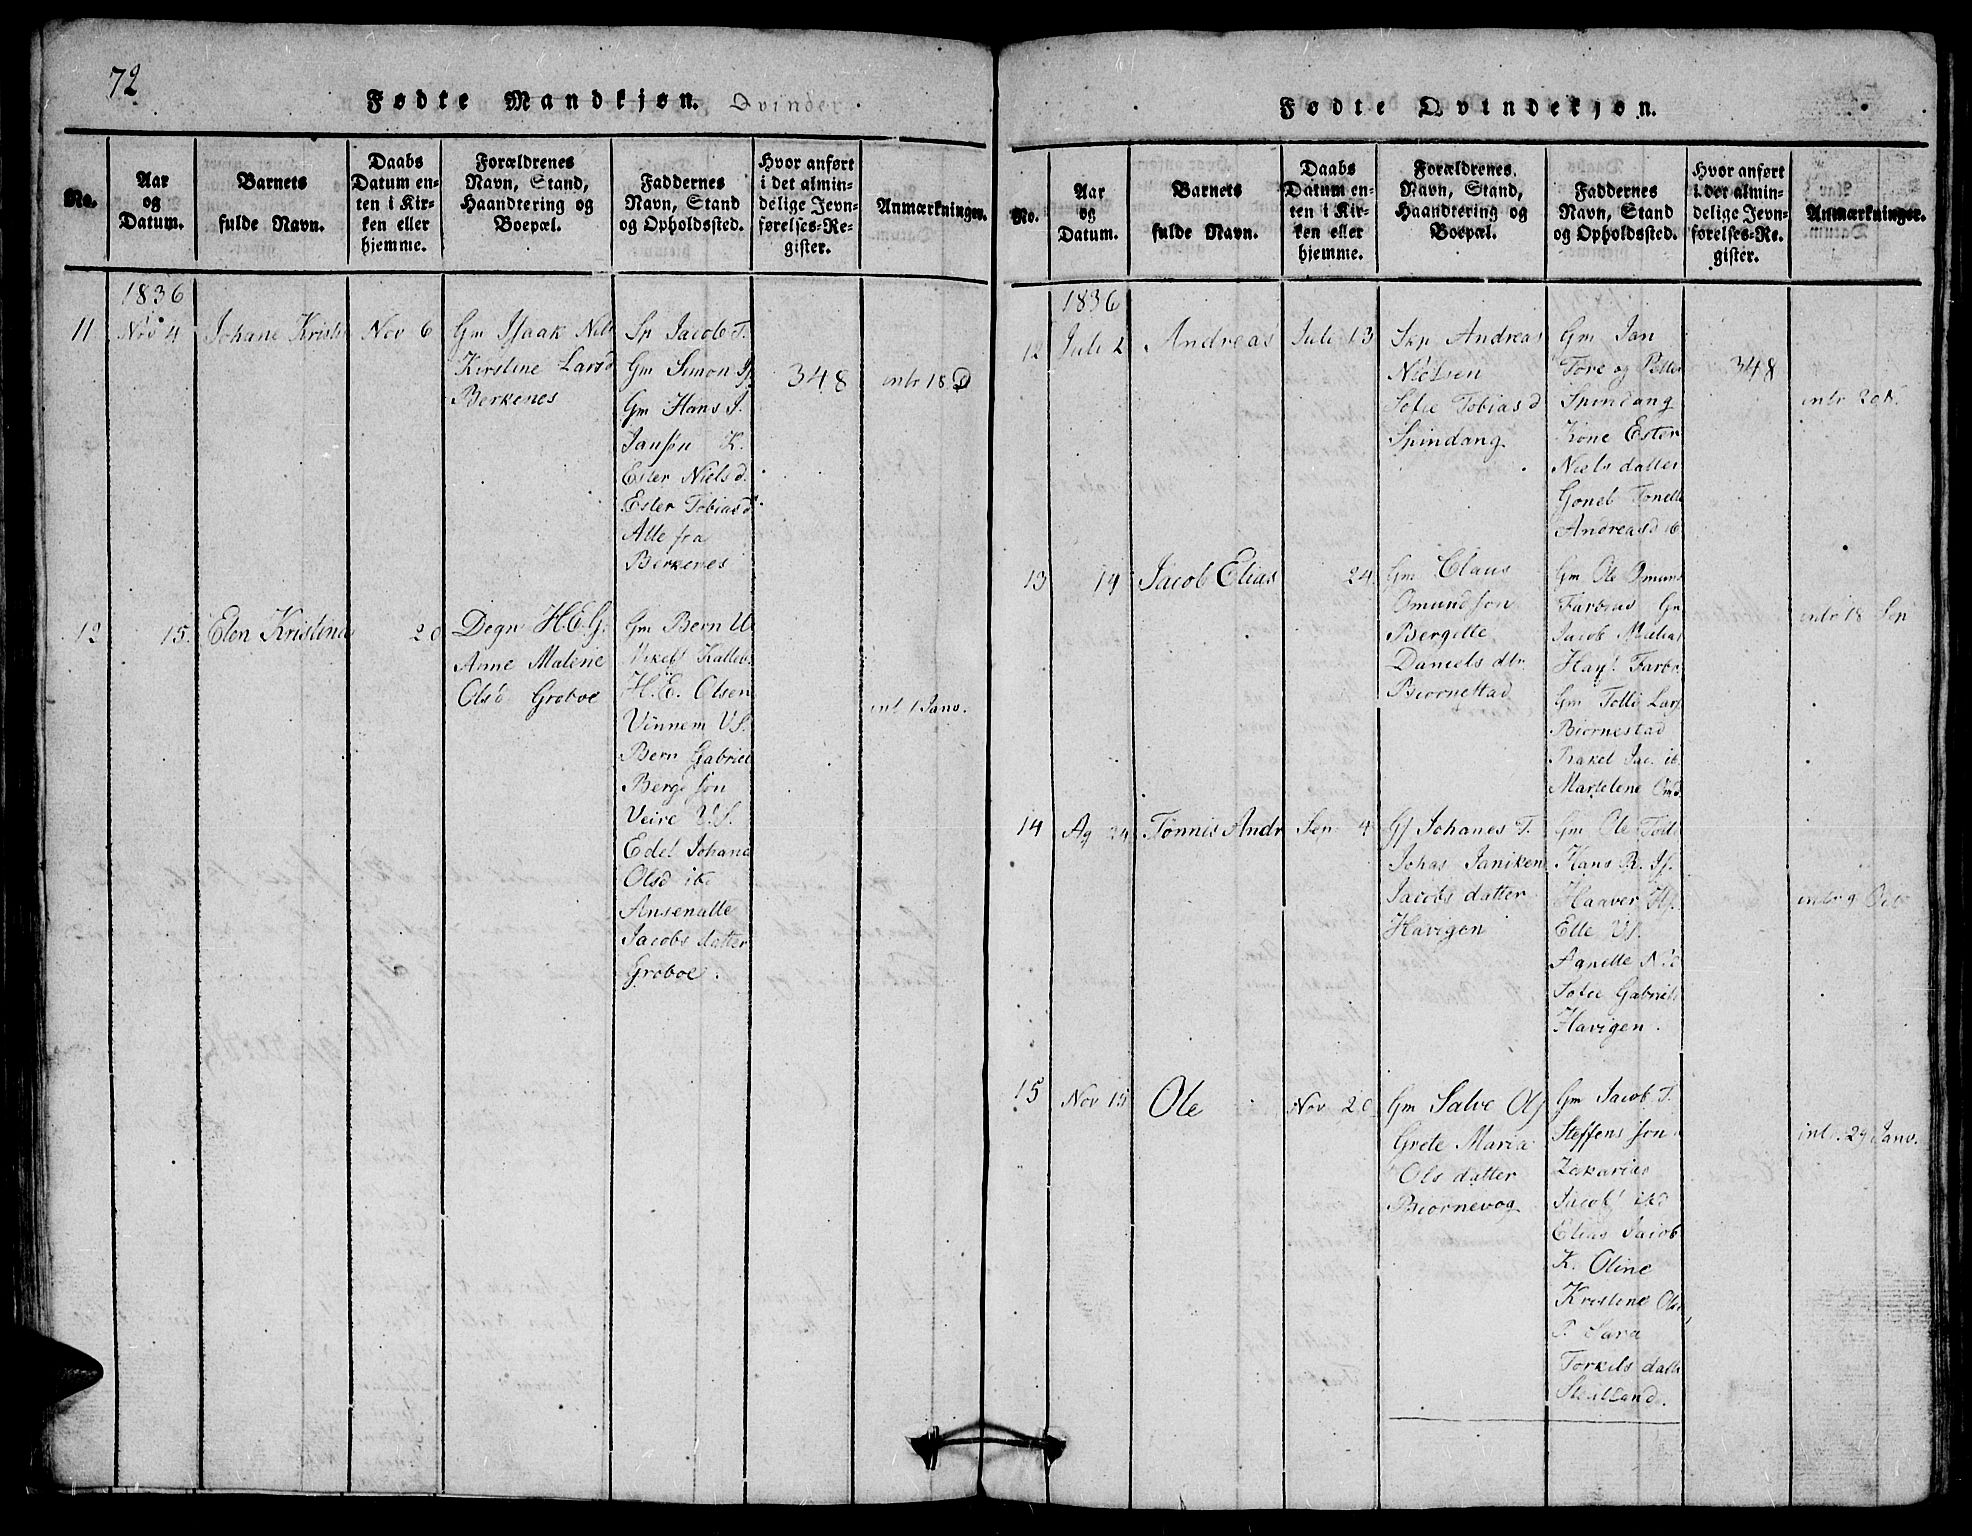 72
Fødte Mandkjøn. Qvinder
No.
Aar
og
Datum.
Barnets
fulde Navn.
Daabs
Datum en-
ten i Kir-
ken eller
hjemme.
Forældrenes
Navn, Stand,
Haandtering og
Boepæl.
Faddernes
Navn, Stand
og Opholdssted.
Hvor anført
i det almin-
delige Jevn-
førelses-Re-
gister.
Anmærkninger.
1836
11
Nov 4
Johane Kristi
Nov 6
Gm Isaak Nils
Kirstine Larsd
Berkenes
Sp Jacob T.
Gm Simon
Gm Hans J.
Jansøn K.
Ester Niels d.
Ester Tobias d
Alle fra
Berkenes
348
intr 18
12
15.
Elen Kristina
20
Degn H.E.G.
Anne Malene
Olsd Groboe
Gm Bern
H.E. Olsen
Vinnem
Bern Gabriel
Berge søn
Veire
Edel Johane
Olsd
Ansenatte
Jacobs datter
Groboe.
int 1 Janv.
Fødte Qvindekjøn.
No.
Aar
og
Datum.
Barnets
fulde Navn.
Daabs
Datum en-
ten i Kir-
ken eller
hjemme.
Forældrenes.
Navn, Stand,
Haandtering og
Boepæl.
Faddernes
Navn, Stand
og Opholdssted.
Hvor anført
i det almin-
delige Jevn-
førelses-Re-
gister.
Anmærkninger.
1836
12
Juli 2
Andreas
Juli 13
Skp Andreas
Nielsen
Sofie Tobias d
Spindang
Gm Jan
Tore og Petter
Spindang
Kone Ester
Niels datter
Tonette
Andreasd
348
intr 20
13
19
Jacob Elias
24
Gm Claus
Omundsøn
Bergitte
Daniels dtr
Biornestad
Gm Ole Omuns
Farbrod
Jacob
Farbr
Gm Tolli Lars
Biornestad
Rakel Jac.
Marselene
intr 18 Sep
14
Ag 24
Tønnis Andr
Sep 4
Gf Johanes T.
Johas Janiken
Jacobs datter
Havigen
Gm Ole
Hans
Haaver
Elle
Agnette
Sofie Gabriels
Havigen.
intr 9
15
Nov 15
Ole
Nov 20
Gm Salve
Grete Maria
Ols datter
Biornevog
Gm Jacob T.
Steffens søn
Zakarias
Jacob
Elias Jacob
K. Oline
Kristine Olsd
P. Sara
Torkils datt
intr 29 Janv.